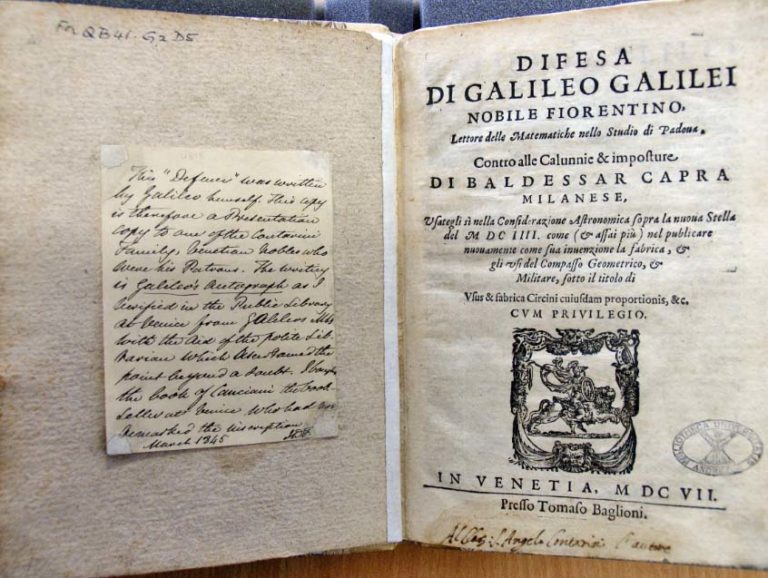 For QB41. G2 D5
This "Defence" was written
by Galileo himself. This copy
is therefore a Presentation
copy to one of the Contarini
Family, Venetian Nobles who
were his Patrons. The writing
is Galileo's Autograph as I
verified in the Public Library
at Venice from Galileo's Mss
with the aid of the polite Lib
rarian which ascertained the
point beyond a doubt. I bought
the book of Canciani the book
seller at Venice who had not
remarked the inscription
March 1845
DIFESA
DI GALILEO GALILEI
NOBILE FIORENTINO,
Lettore delle Matematiche nello Studio di Padoua,
Contro alle Calunnie & imposture
DI BALDESSAR CAPRA
MILANESE,
Vsategli sì nella Considerazione Astronomica sopra la nuoua Stella
del M D C IIII. come (& assai più) nel publicare
nuouamente come sua inuenzione la fabrica, &
gli vsi del Compasso Geometrico, &
Militare, sotto il titolo di
Vsus & fabrica Circini cuiusdam proportionis, &c.
CVM PRIVILEGIO.
IN VENETIA, M DC VII.
Presso Tomaso Baglioni.